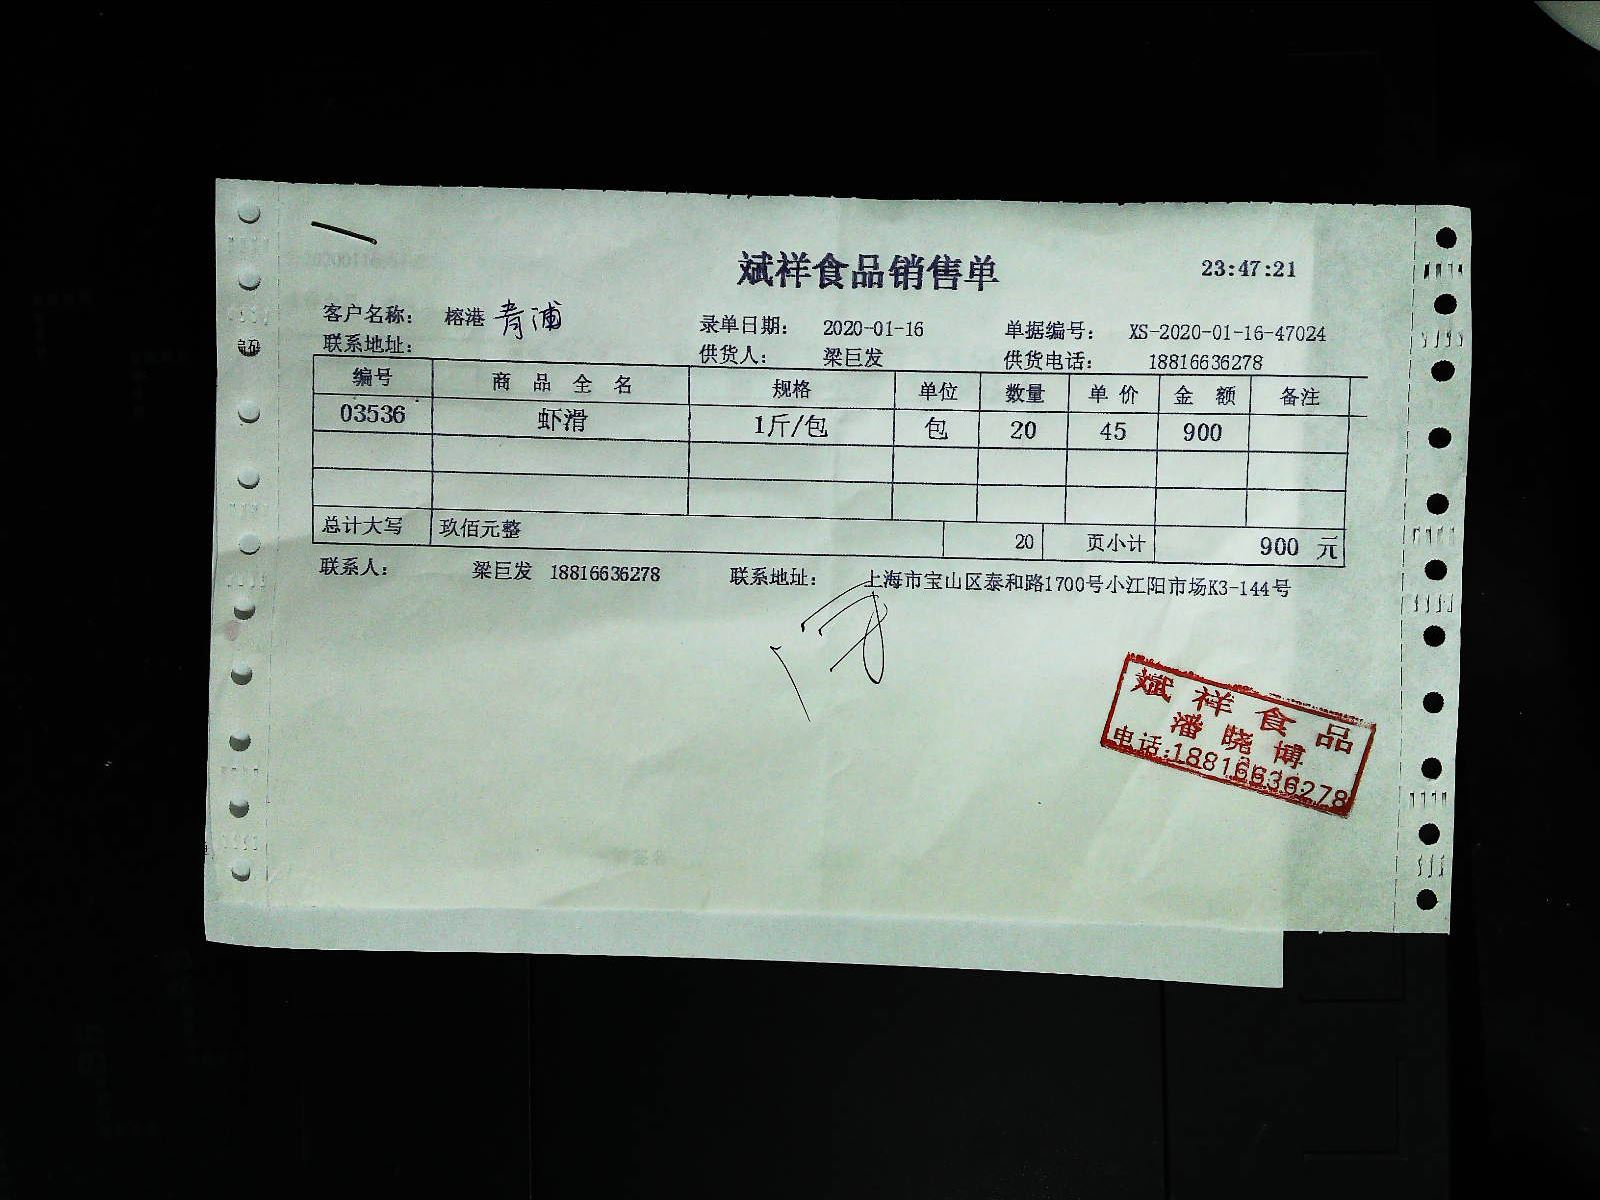 斌祥食品销售单 23:47:21
客户名称： 榕港 青浦 录单日期： 2020-01-16 单据编号： XS-2020-01-16-47024
联系地址： 供货人： 梁巨发 供货电话： 18816636278
编号 商品全名 规格 单位 数量 单价 金额 备注
03536 虾滑 1斤/包 包 20 45 900
总计大写 玖佰元整 20 页小计 900 元
联系人： 梁巨发 18816636278 联系地址： 上海市宝山区泰和路1700号小江阳市场K3-144号
斌祥食品
潘晓博
电话:18816636278